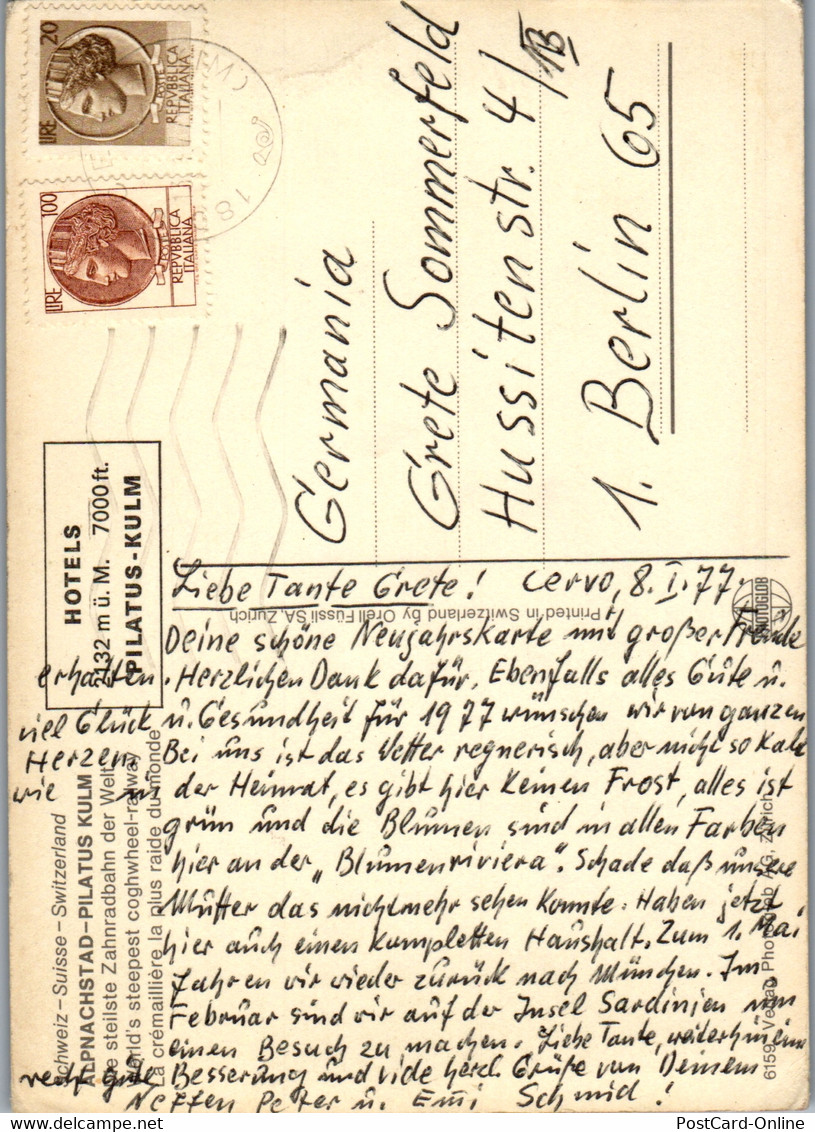 LIRE 20
POSTE
REPVBBLICA
ITALIANA
LIRE 100
POSTE
REPVBBLICA
ITALIANA
18
Germania
Grete Sommerfeld
Hussitenstr. 4/
1. Berlin 65
HOTELS
2132 m ü. M. 7000 ft.
PILATUS-KULM
Schweiz – Suisse – Switzerland
ALPNACHSTAD–PILATUS KULM
Die steilste Zahnradbahn der Welt
World's steepest coghwheel-railway
La crémaillière la plus raide du monde
Printed in Switzerland by Orell Füssli SA, Zurich
PHOTOGLOB
61599 Verlag Photoglob AG, Zürich
Liebe Tante Grete! Cervo, 8. I. 77.
Deine schöne Neujahrskarte mit großer Freude
erhalten. Herzlichen Dank dafür. Ebenfalls alles Gute u.
viel Glück u. Gesundheit für 1977 wünschen wir von ganzen
Herzen. Bei uns ist das Wetter regnerisch, aber nicht so kalt
wie in der Heimat, es gibt hier keinen Frost, alles ist
grün und die Blumen sind in allen Farben
hier an der „Blumenriviera". Schade daß unsere
Mutter das nicht mehr sehen konnte. Haben jetzt
hier auch einen kompletten Haushalt. Zum 1. Mai
fahren wir wieder zurück nach München. Im
Februar sind wir auf der Insel Sardinien um
einen Besuch zu machen. Liebe Tante, weiterhin eine
recht gute Besserung und viele herzl. Grüße von Deinem
Neffen Peter u. Emi Schmid!
PostCard-Online